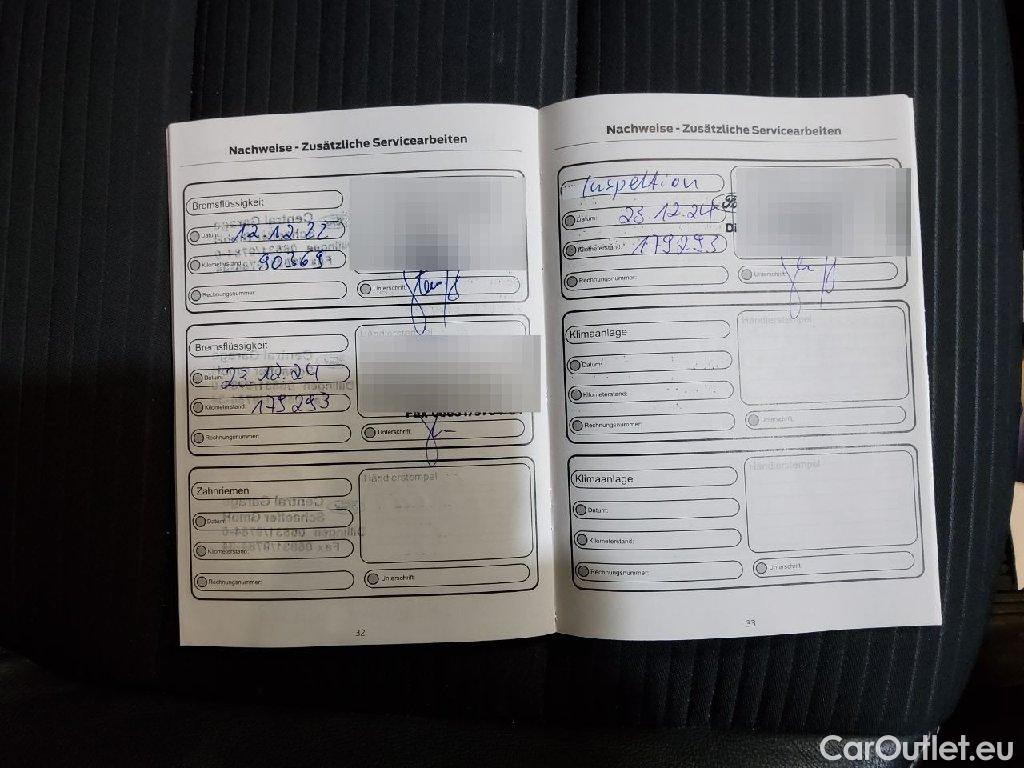 Nachweise - Zusätzliche Servicearbeiten
Bremsflüssigkeit
Datum: 12.12.22
Kilometerstand: 90369
Rechnungsnummer:
Unterschrift:
Bremsflüssigkeit
Händlerstempel
Datum: 23.12.24
Kilometerstand: 179293
Rechnungsnummer:
Unterschrift:
Zahnriemen
Händlerstempel
Datum:
Kilometerstand:
Rechnungsnummer:
Unterschrift:
32
Nachweise - Zusätzliche Servicearbeiten
Inspektion
Datum: 23.12.24
Kilometerstand: 179293
Rechnungsnummer:
Unterschrift:
Klimaanlage
Händlerstempel
Datum:
Kilometerstand:
Rechnungsnummer:
Unterschrift:
Klimaanlage
Händlerstempel
Datum:
Kilometerstand:
Rechnungsnummer:
Unterschrift:
33
CarOutlet.eu